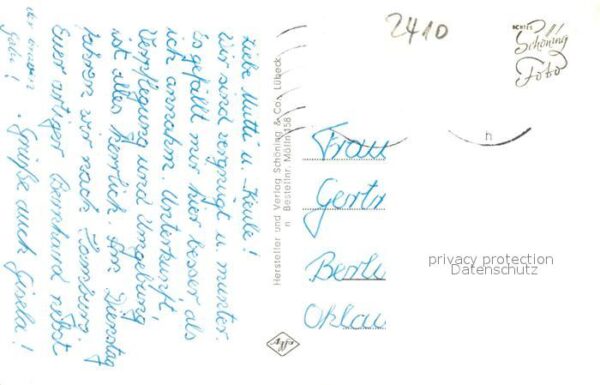 Liebe Mutti u. Keule!
Wir sind vergnügt u. munter.
Es gefällt mir hier besser als
ich annahm. Unterkunft,
Verpflegung und Umgebung
ist alles herrlich. Am Dienstag
fahren wir nach
Euer artiger Bernhard nebst
Grüße auch Gisela!
Hersteller und Verlag Schöning & Co., Lübeck
n. Bestellnr. Mölln 158
Agfa
2410
ECHTES
Schöning
Foto
h
Frau
Gertr
Berli
Oklau
privacy protection
Datenschutz